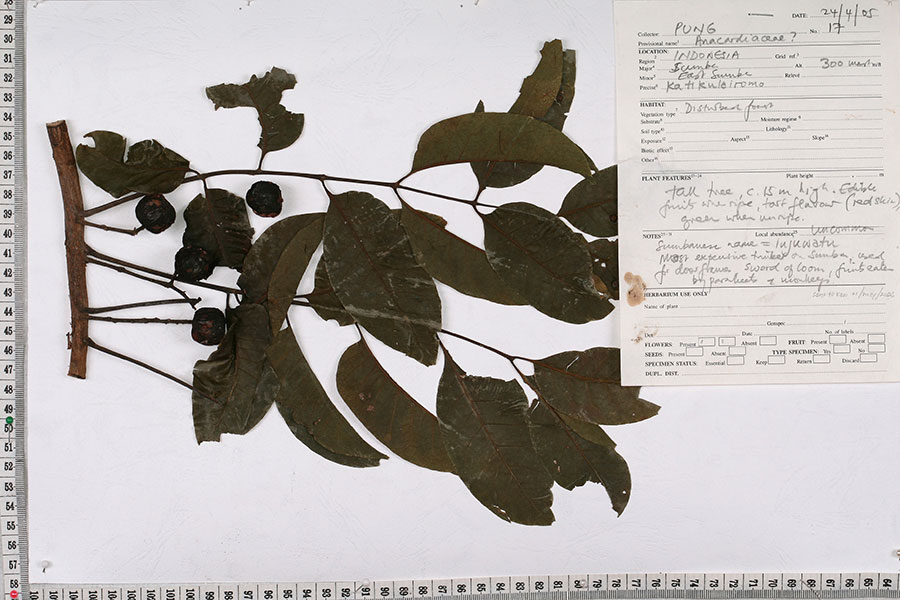 DATE: 24/4/05
Collector PUNG No. 17
Provisional name Anacardiaceae ?
LOCATION:
Region INDONESIA Grid ref.
Major Sumba Alt 300
Minor East Sumba Relevé
Precise
HABITAT
Vegetation type Disturbed forest
Substrate Moisture regime
Soil type Lithology
Exposure Aspect Slope
Biotic effect
Other
PLANT FEATURES Plant height m
Tall tree, c. 15 m high. Edible
fruits when ripe, tart flavour (red skin),
green when unripe.
NOTES Local abundance uncommon
Sumbanese name = injuwatu
Most expensive timber on Sumba, used
for sword of loom, fruits eaten
by parakeets & monkeys
HERBARIUM USE ONLY
Name of plant
Genspec /
Det: Date: No. of labels
FLOWERS: Present Absent FRUIT: Present Absent
SEEDS: Present Absent TYPE SPECIMEN: Yes No
SPECIMEN STATUS: Essential Keep Return Discard
DUPL. DIST.
29
30
31
32
33
34
35
36
37
38
39
40
41
42
43
44
45
46
47
48
49
50
51
52
53
54
55
56
57
58
101 100 99 98 97 96 95 94 93 92 91 90 89 88 87 86 85 84 83 82 81 80 79 78 77 76 75 74 73 72 71 70 69 68 67 66 65 64